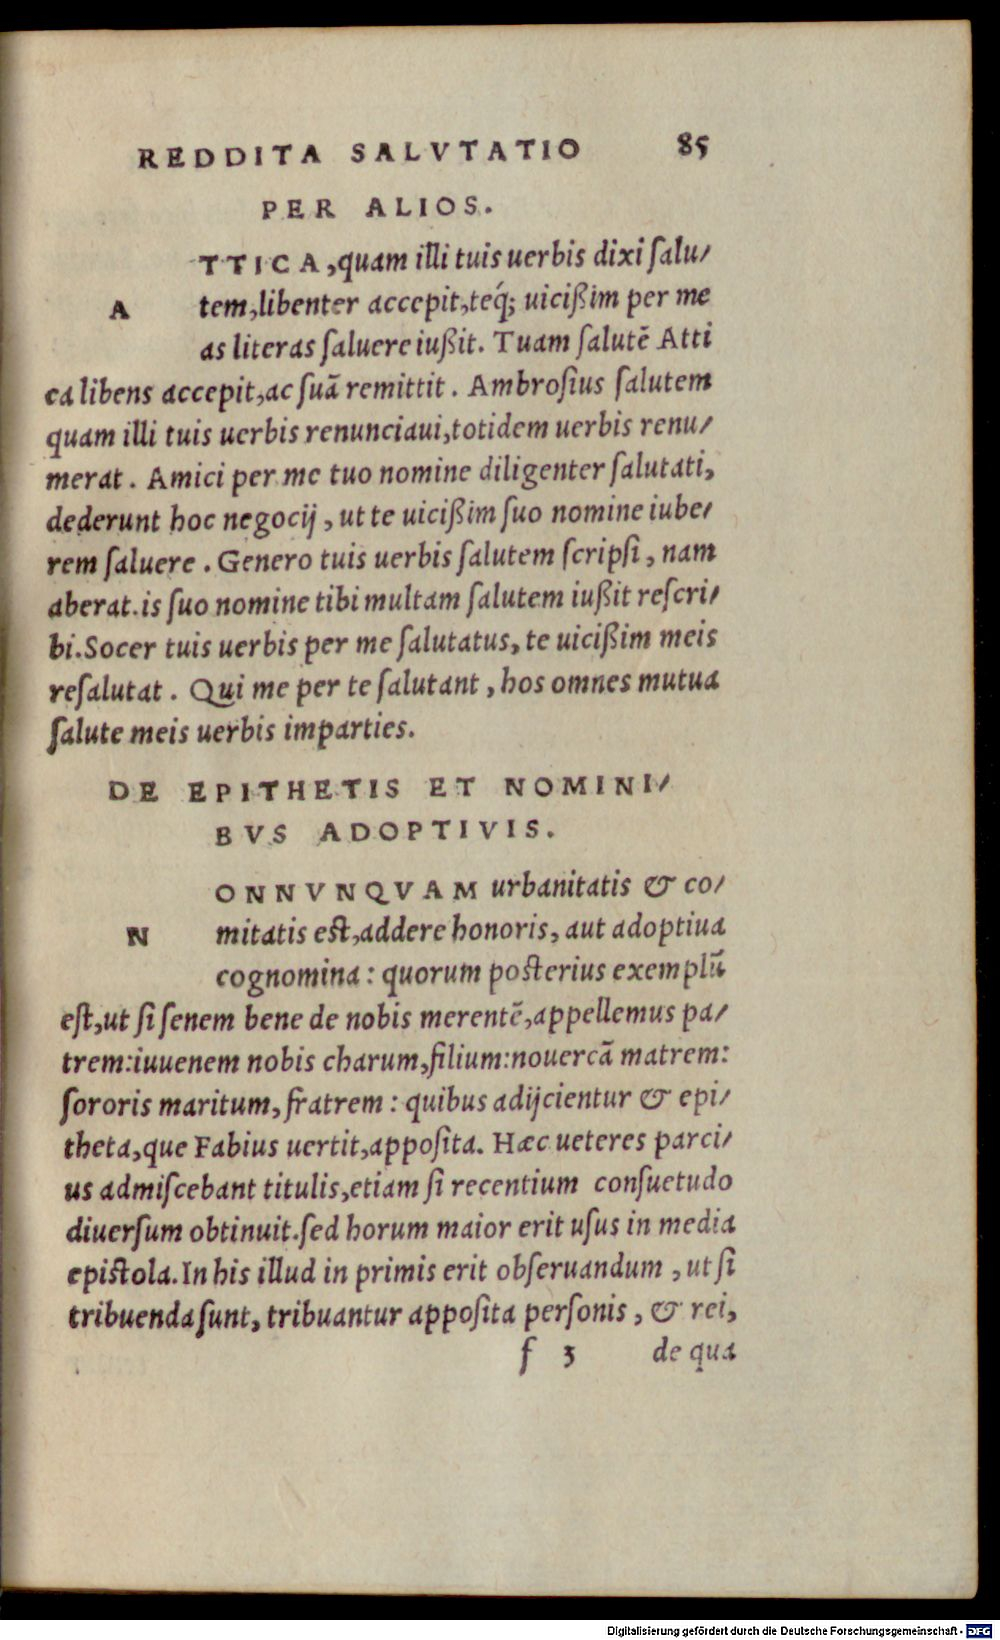 REDDITA SALVTATIO 85
PER ALIOS.
ATTICA, quam illi tuis uerbis dixi ſalu/
tem, libenter accepit, teq́; uicißim per me
as literas ſaluere iußit. Tuam ſalutē Atti
ca libens accepit, ac ſuā remittit. Ambroſius ſalutem
quam illi tuis uerbis renunciaui, totidem uerbis renu/
merat. Amici per me tuo nomine diligenter ſalutati,
dederunt hoc negocij, ut te uicißim ſuo nomine iube/
rem ſaluere. Genero tuis uerbis ſalutem ſcripſi, nam
aberat. is ſuo nomine tibi multam ſalutem iußit reſcri/
bi. Socer tuis uerbis per me ſalutatus, te uicißim meis
reſalutat. Qui me per te ſalutant, hos omnes mutua
ſalute meis uerbis imparties.
DE EPITHETIS ET NOMINI/
BVS ADOPTIVIS.
NONNVNQVAM urbanitatis & co/
mitatis eſt, addere honoris, aut adoptiua
cognomina: quorum poſterius exemplū
eſt, ut ſi ſenem bene de nobis merentē, appellemus pa/
trem: iuuenem nobis charum, filium: nouercā matrem:
ſororis maritum, fratrem: quibus adijcientur & epi/
theta, que Fabius uertit, appoſita. Hæc ueteres parci/
us admiſcebant titulis, etiam ſi recentium conſuetudo
diuerſum obtinuit. ſed horum maior erit uſus in media
epiſtola. In his illud in primis erit obſeruandum, ut ſi
tribuenda ſunt, tribuantur appoſita perſonis, & rei,
f 3 de qua
Digitalisierung gefördert durch die Deutsche Forschungsgemeinschaft - DFG